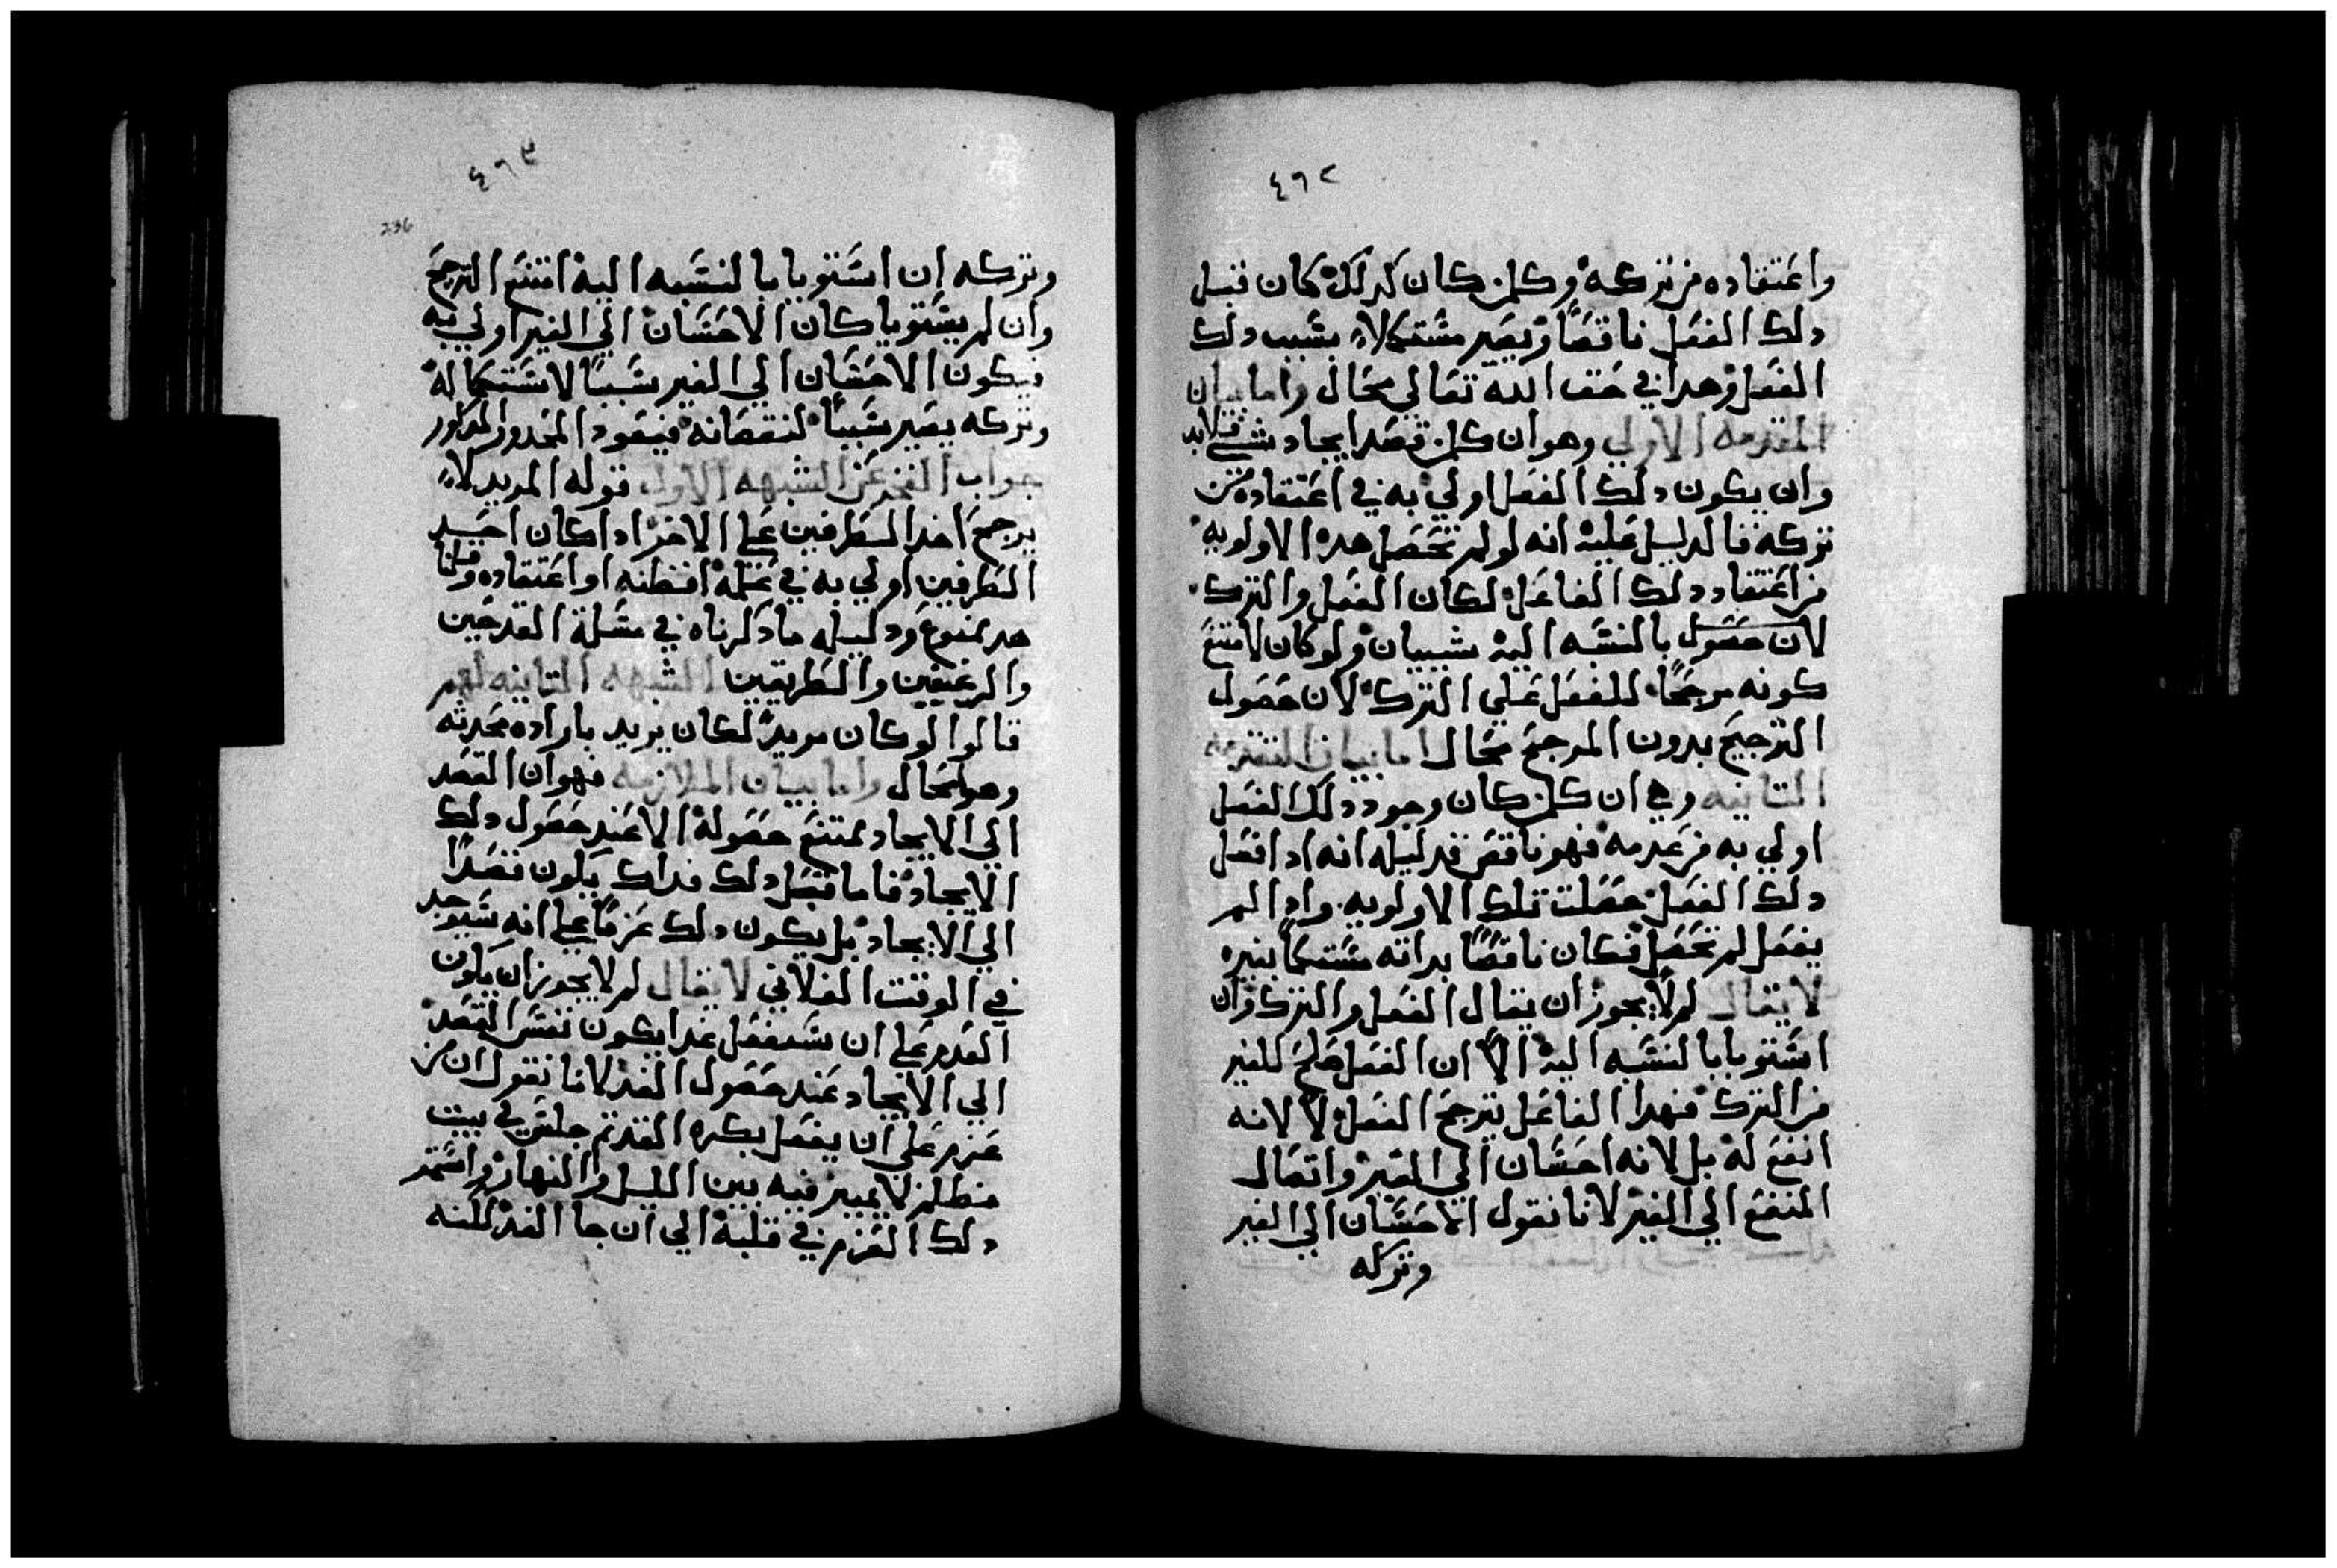 ٤٦٢
واعتقاده من تركه وكلمن كان كدلك كان قبل
دلك الفعل ناقصًا ويصير مستكملاً بسبب دلك
الفعل وهدا في حق الله تعالي محال واما بيان
المقدمه الاولي وهو ان كلمن قصد ايجاد شي فلابد
وان يكون دلك الفعل اولي به في اعتقاده من
تركه فالدليل عليه انه لو لم تحصل هده الاولويه
في اعتقاد دلك الفاعل لكان الفعل والترك
لان حصول بالنسبه اليه سيبان ولو كان لامتنع
كونه مرجحًا للفعل علي الترك لان حصول
الترجيح بدون المرجح محال اما بيان المقدمه
التانيه وهي ان كلمن كان وجود دلك الفعل
اولي به من عدمه فهو ناقص فدليله انه ادا فعل
دلك الفعل حصلت تلك الاولويه وادا لم
يفعل لم تحصل فكان ناقصًا بداته مستكملا بغيره
لا يقال لم لا يجوز ان يقال الفعل والترك وان
استويا بالنسبه اليه الا ان الفعل صلح للغير
من الترك فهدا الفاعل يترجح الفعل لا لانه
انفع له بل لانه احسان الي الغير واتصال
المنفع الي الغير لانا نقول الاحسان الي الغير
وتركه
٤٦٣
236
وتركه ان استويا بالنسبه اليه امتنع الترجيح
وان لم يستويا كان الاحسان الي الغير اولي به
فيكون الاحسان الي الغير سببًا لاستكماله
وتركه يصير سببًا لنقصانه فيعود المحدور المدكور
جواب الفخر عن الشبهه الاولي قوله المريد لا
يرجح احد الطرفين علي الاخر ادا كان احد
الطرفين اولي به في عمله او ظنه او اعتقاده قلنا
هدا ممنوع ودليله ما دكرناه في مسلة القدحين
والرغيفين والطريقين الشبهه التانيه لهم
قالوا لو كان مريدًا لكان يريد باراده محدثه
وهو محال واما بيان الملازمه فهو ان القصد
الي الايجاد يمتنع حصوله الا عند حصول دلك
الايجاد فاما قبل دلك فداك يكون قصدًا
الي الايجاد بل يكون دلك عزمًا علي انه سيوجد
في الوقت الفلاني لا يقال لم لا يجوز ان يكون
العزم علي ان سيفعل غدا يكون نفس القصد
الي الايجاد عند حصول الغد لانا نقول ان من
عزم علي ان يفعل بكره الغد تم جلس في بيت
مظلم لا يميز فيه بين الليل والنهار واستمر
دلك العزم في قلبه الي ان جا الغد لكنه